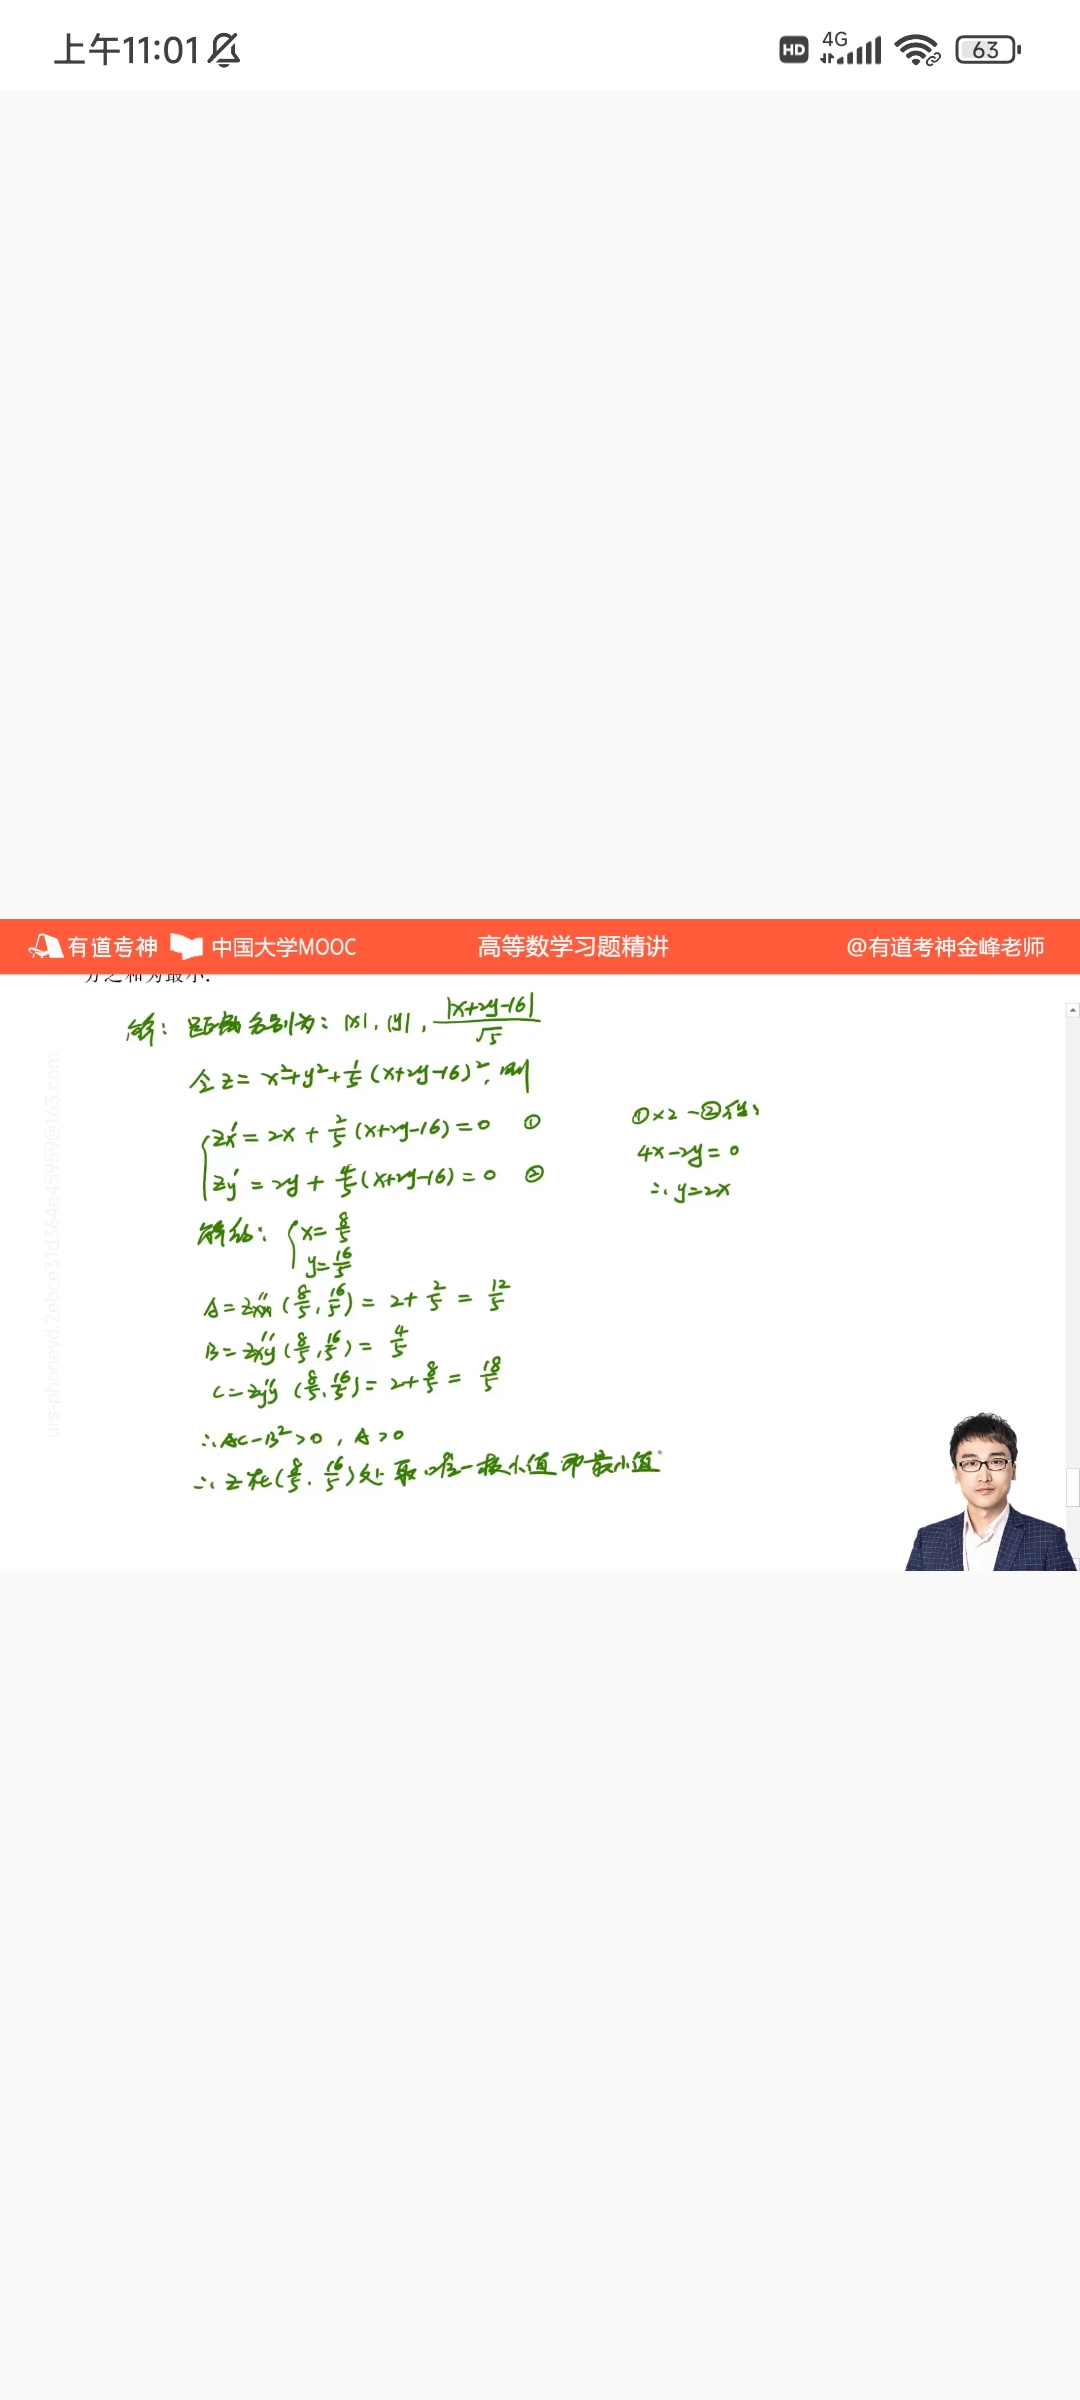 上午11:01
HD 4G 63
有道考神 中国大学MOOC 高等数学习题精讲 @有道考神金峰老师
方之和为最小.
解: 距离分别为: |x|, |y|, |x+2y-16|/√5
令 z = x²+y²+1/5 (x+2y-16)², 则
zx' = 2x + 2/5 (x+2y-16) = 0 ①
zy' = 2y + 4/5 (x+2y-16) = 0 ②
①×2-②得:
4x-2y=0
∴ y=2x
解得: { x=8/5
y=16/5
A = zxx'' (8/5, 16/5) = 2+2/5 = 12/5
B = zxy'' (8/5, 16/5) = 4/5
C = zyy'' (8/5, 16/5) = 2+8/5 = 18/5
∴ AC-B²>0, A>0
∴ z在(8/5, 16/5)处取唯一极小值即最小值
urs-phoneyd.2ebce31d364e45959@163.com